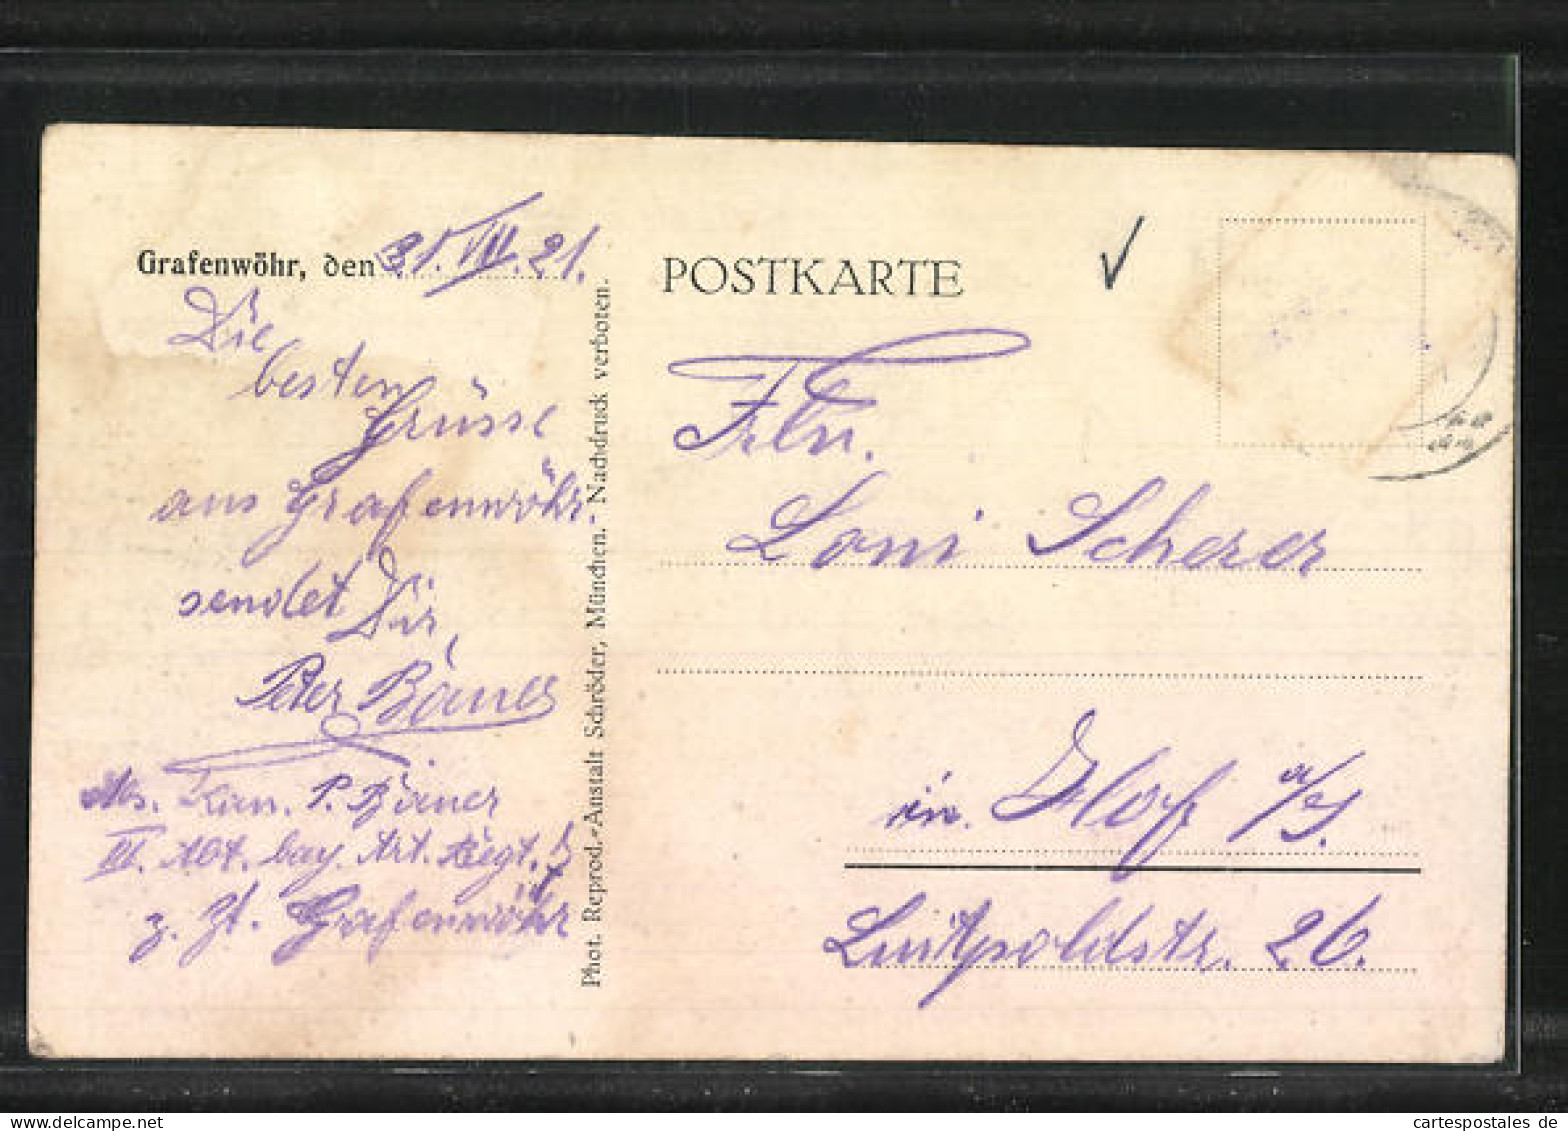 Grafenwöhr, den 31. VII. 21.
Die
besten
Grüsse
aus Grafenwöhr.
sendet Dir,
Peter
Abs. Kan. P.
III. Abt. bay. Art. Regt.
z. Zt. Grafenwöhr
Phot. Reprod.-Anstalt Schröder, München. Nachdruck verboten.
POSTKARTE
Frln.
Loni Scherer
in. Hof a/S.
Luitpoldstr. 26.
cartespostales de